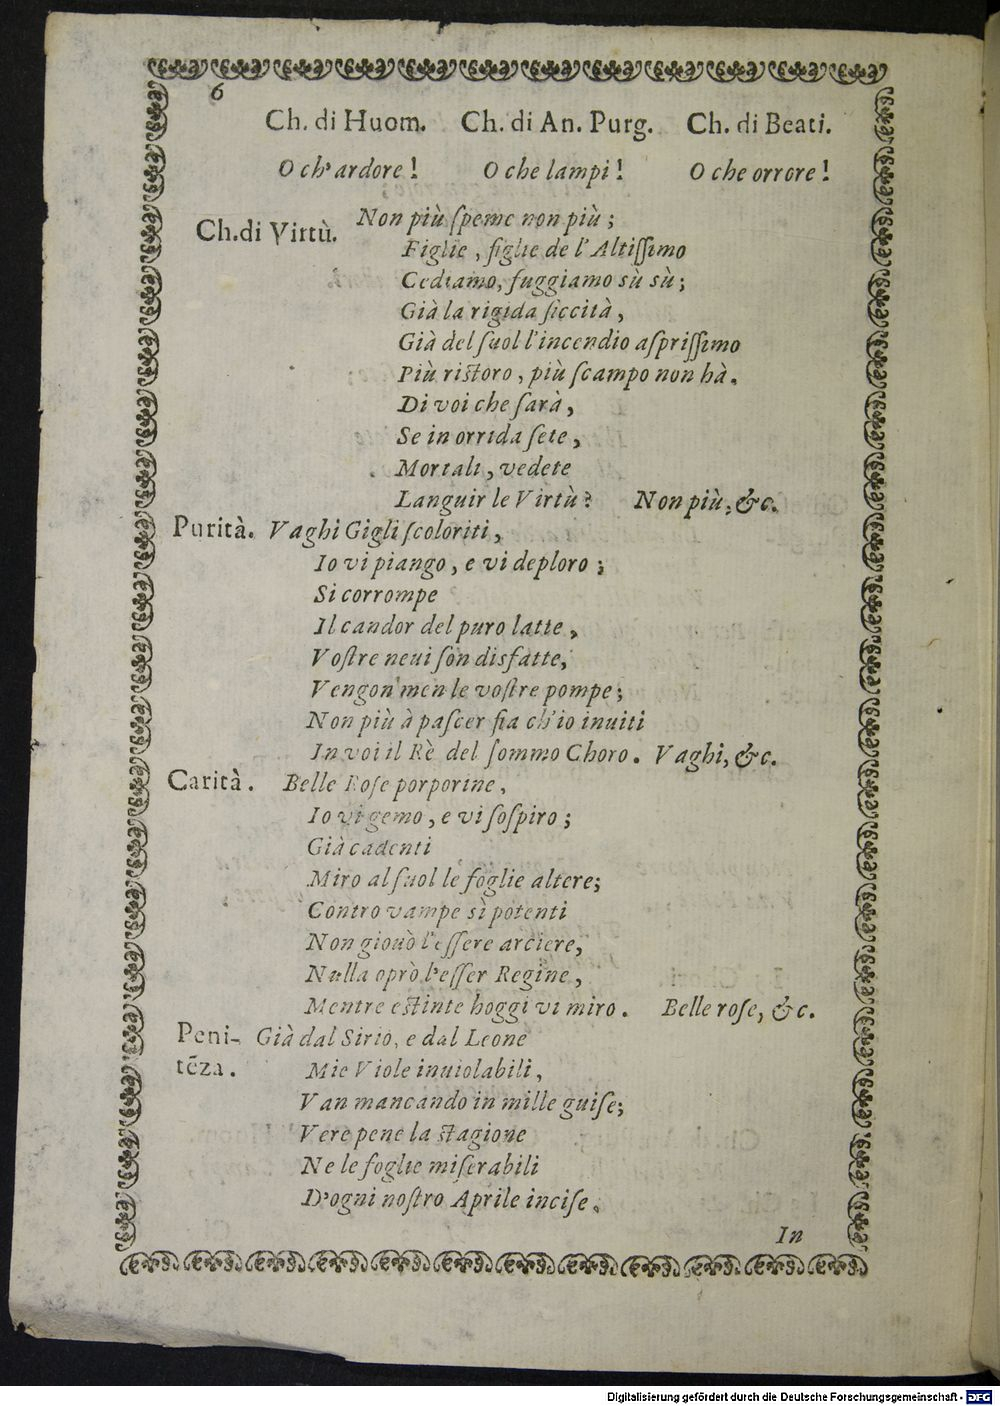 6
Ch. di Huom. Ch. di An. Purg. Ch. di Beati.
O ch'ardore! O che lampi! O che orrore!
Ch.di Virtù. Non più ſpeme non più;
Figlie, figlie de l'Altiſſimo
Cediamo, fuggiamo sù sù;
Già la rigida ſiccità,
Già del ſuol l'incendio aſpriſſimo
Più riſtoro, più ſcampo non hà.
Di voi che ſarà,
Se in orrida ſete,
Mortali, vedete
Languir le Virtù? Non più, &c.
Purità. Vaghi Gigli ſcoloriti,
Io vi piango, e vi deploro;
Si corrompe
Il candor del puro latte,
Voſtre neui ſon disfatte,
Vengon men le voſtre pompe;
Non più à paſcer fia ch'io inuiti
In voi il Rè del ſommo Choro. Vaghi, &c.
Carità. Belle Roſe porporine,
Io vi gemo, e vi ſoſpiro;
Già cadenti
Miro al ſuol le foglie altere;
Contro vampe sì potenti
Non giouò l'eſſere arciere,
Nulla oprò l'eſſer Regine,
Mentre eſtinte hoggi vi miro. Belle roſe, &c.
Peni- Già dal Sirio, e dal Leone
tẽza. Mie Viole inuiolabili,
Van mancando in mille guiſe;
Vere pene la ſtagione
Ne le foglie miſerabili
D'ogni noſtro Aprile inciſe.
In
Digitalisierung gefördert durch die Deutsche Forschungsgemeinschaft - DFG